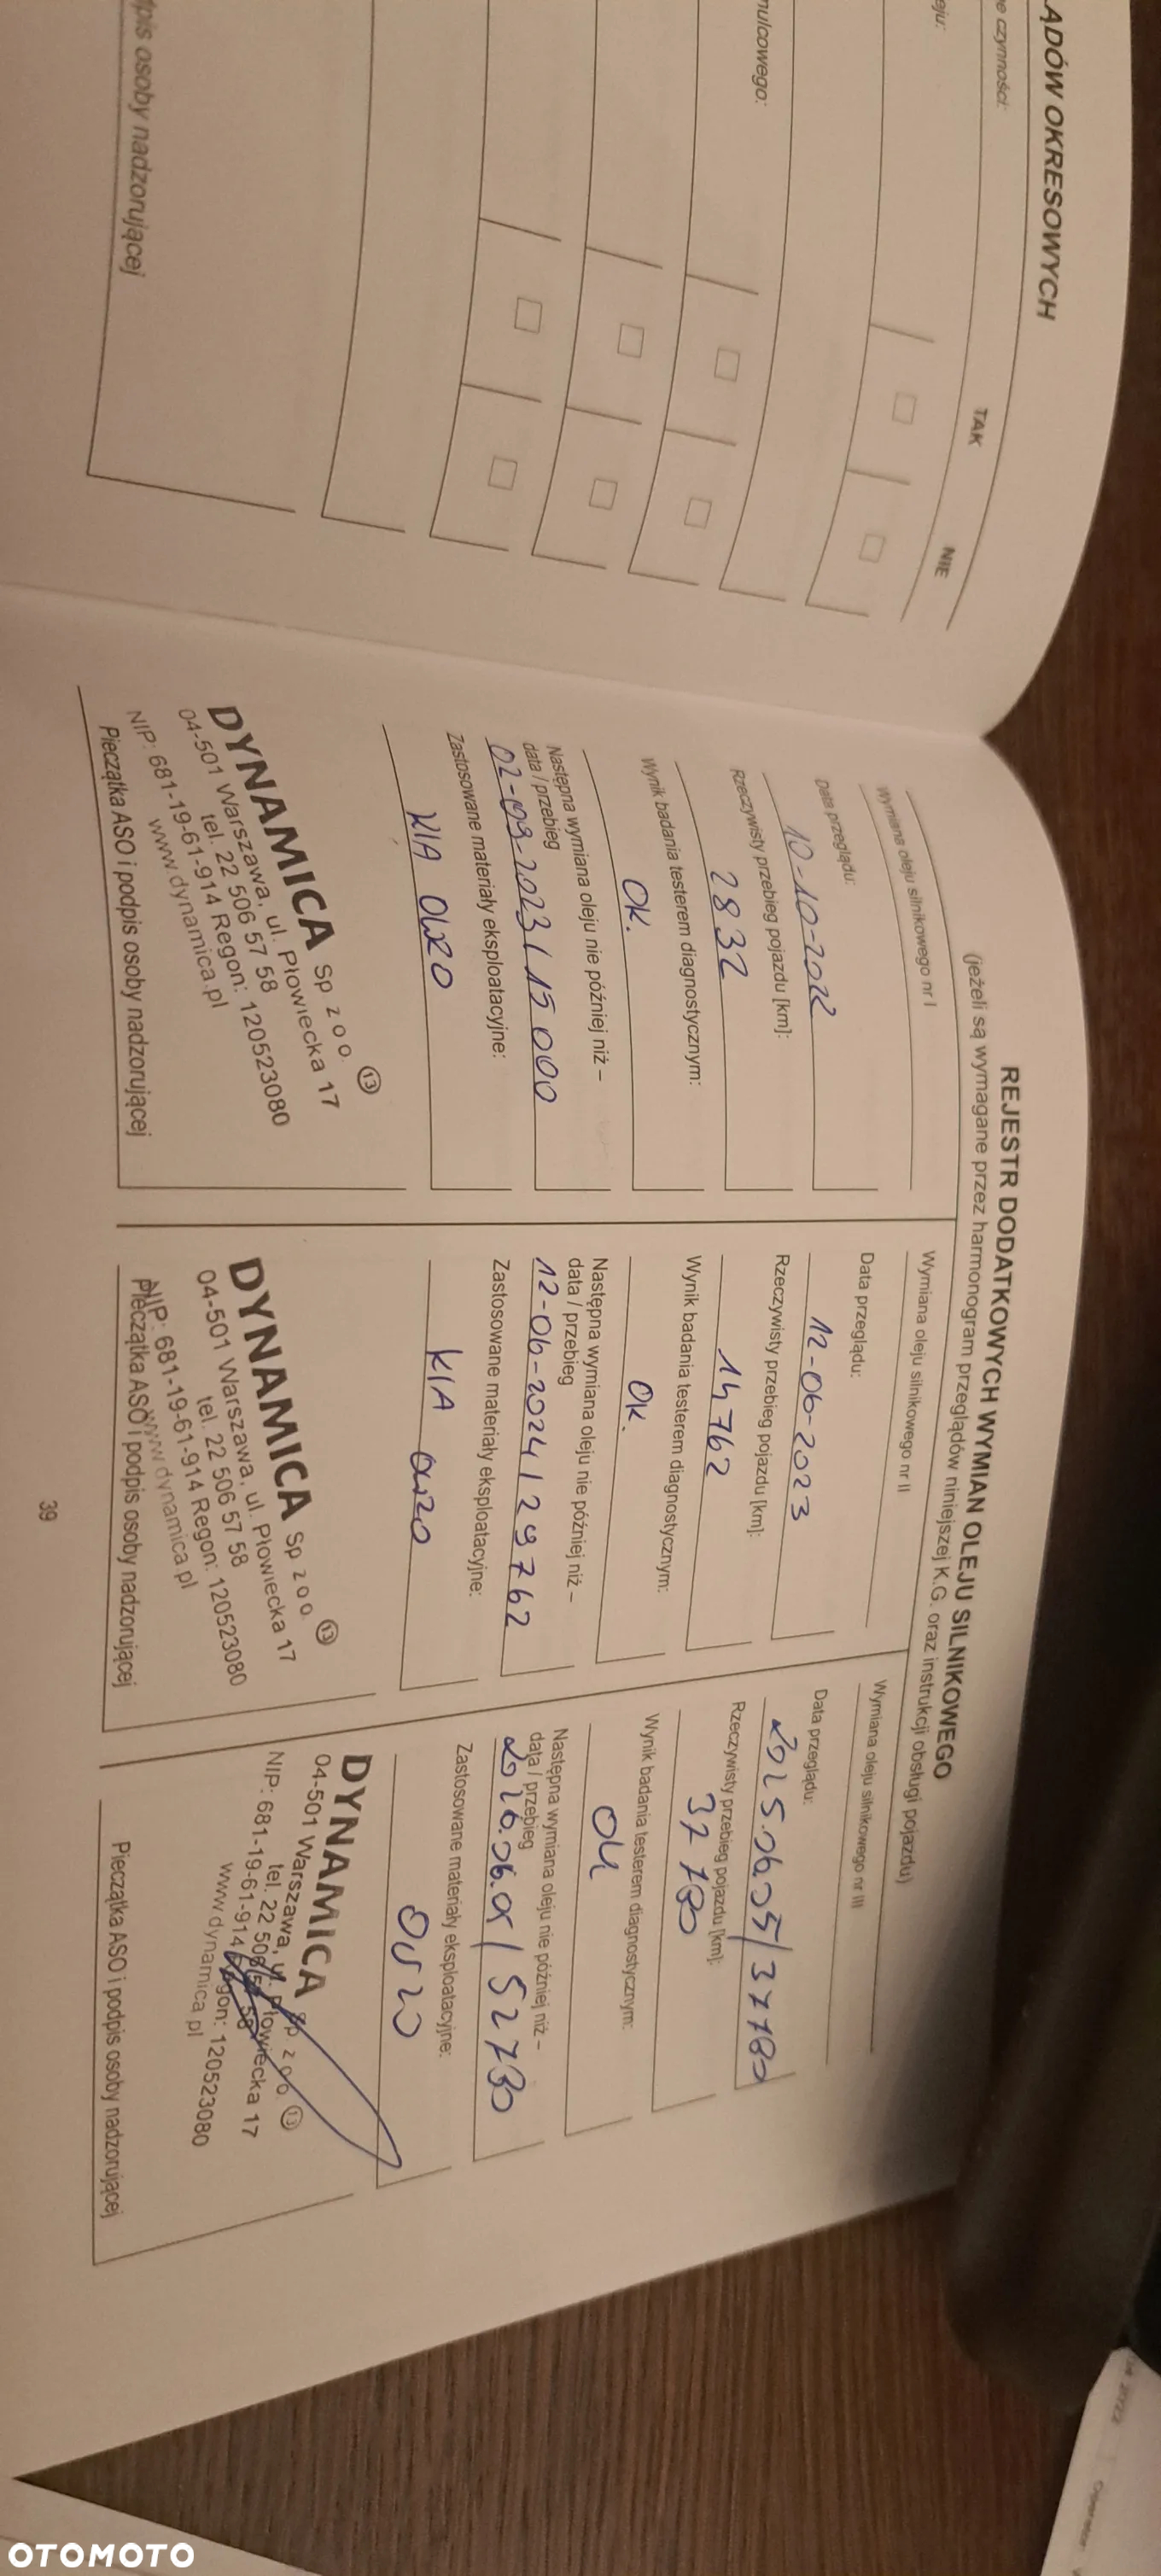 ĄDÓW OKRESOWYCH
e czynności:
TAK
NIE
eju:
nulcowego:
pis osoby nadzorującej
REJESTR DODATKOWYCH WYMIAN OLEJU SILNIKOWEGO
(jeżeli są wymagane przez harmonogram przeglądów niniejszej K.G. oraz instrukcji obsługi pojazdu)
Wymiana oleju silnikowego nr I
Data przeglądu:
10-10-2022
Rzeczywisty przebieg pojazdu [km]:
2832
Wynik badania testerem diagnostycznym:
OK.
Następna wymiana oleju nie później niż –
data / przebieg
02-09-2023 / 15 000
Zastosowane materiały eksploatacyjne:
KIA 0W20
DYNAMICA Sp z o o. 13
04-501 Warszawa, ul. Płowiecka 17
tel. 22 506 57 58
NIP: 681-19-61-914 Regon: 120523080
www.dynamica.pl
Pieczątka ASO i podpis osoby nadzorującej
Wymiana oleju silnikowego nr II
Data przeglądu:
12-06-2023
Rzeczywisty przebieg pojazdu [km]:
14762
Wynik badania testerem diagnostycznym:
OK.
Następna wymiana oleju nie później niż –
data / przebieg
12-06-2024 / 29762
Zastosowane materiały eksploatacyjne:
KIA 0W20
DYNAMICA Sp z o o. 13
04-501 Warszawa, ul. Płowiecka 17
tel. 22 506 57 58
NIP: 681-19-61-914 Regon: 120523080
www.dynamica.pl
Pieczątka ASO i podpis osoby nadzorującej
Wymiana oleju silnikowego nr III
Data przeglądu:
2025.06.05 / 37780
Rzeczywisty przebieg pojazdu [km]:
37 780
Wynik badania testerem diagnostycznym:
OK
Następna wymiana oleju nie później niż –
data / przebieg
2026.06.01 / 52780
Zastosowane materiały eksploatacyjne:
0W20
DYNAMICA Sp z o o. 13
04-501 Warszawa, ul. Płowiecka 17
tel. 22 506 57 58
NIP: 681-19-61-914 Regon: 120523080
www.dynamica.pl
Pieczątka ASO i podpis osoby nadzorującej
39
OTOMOTO